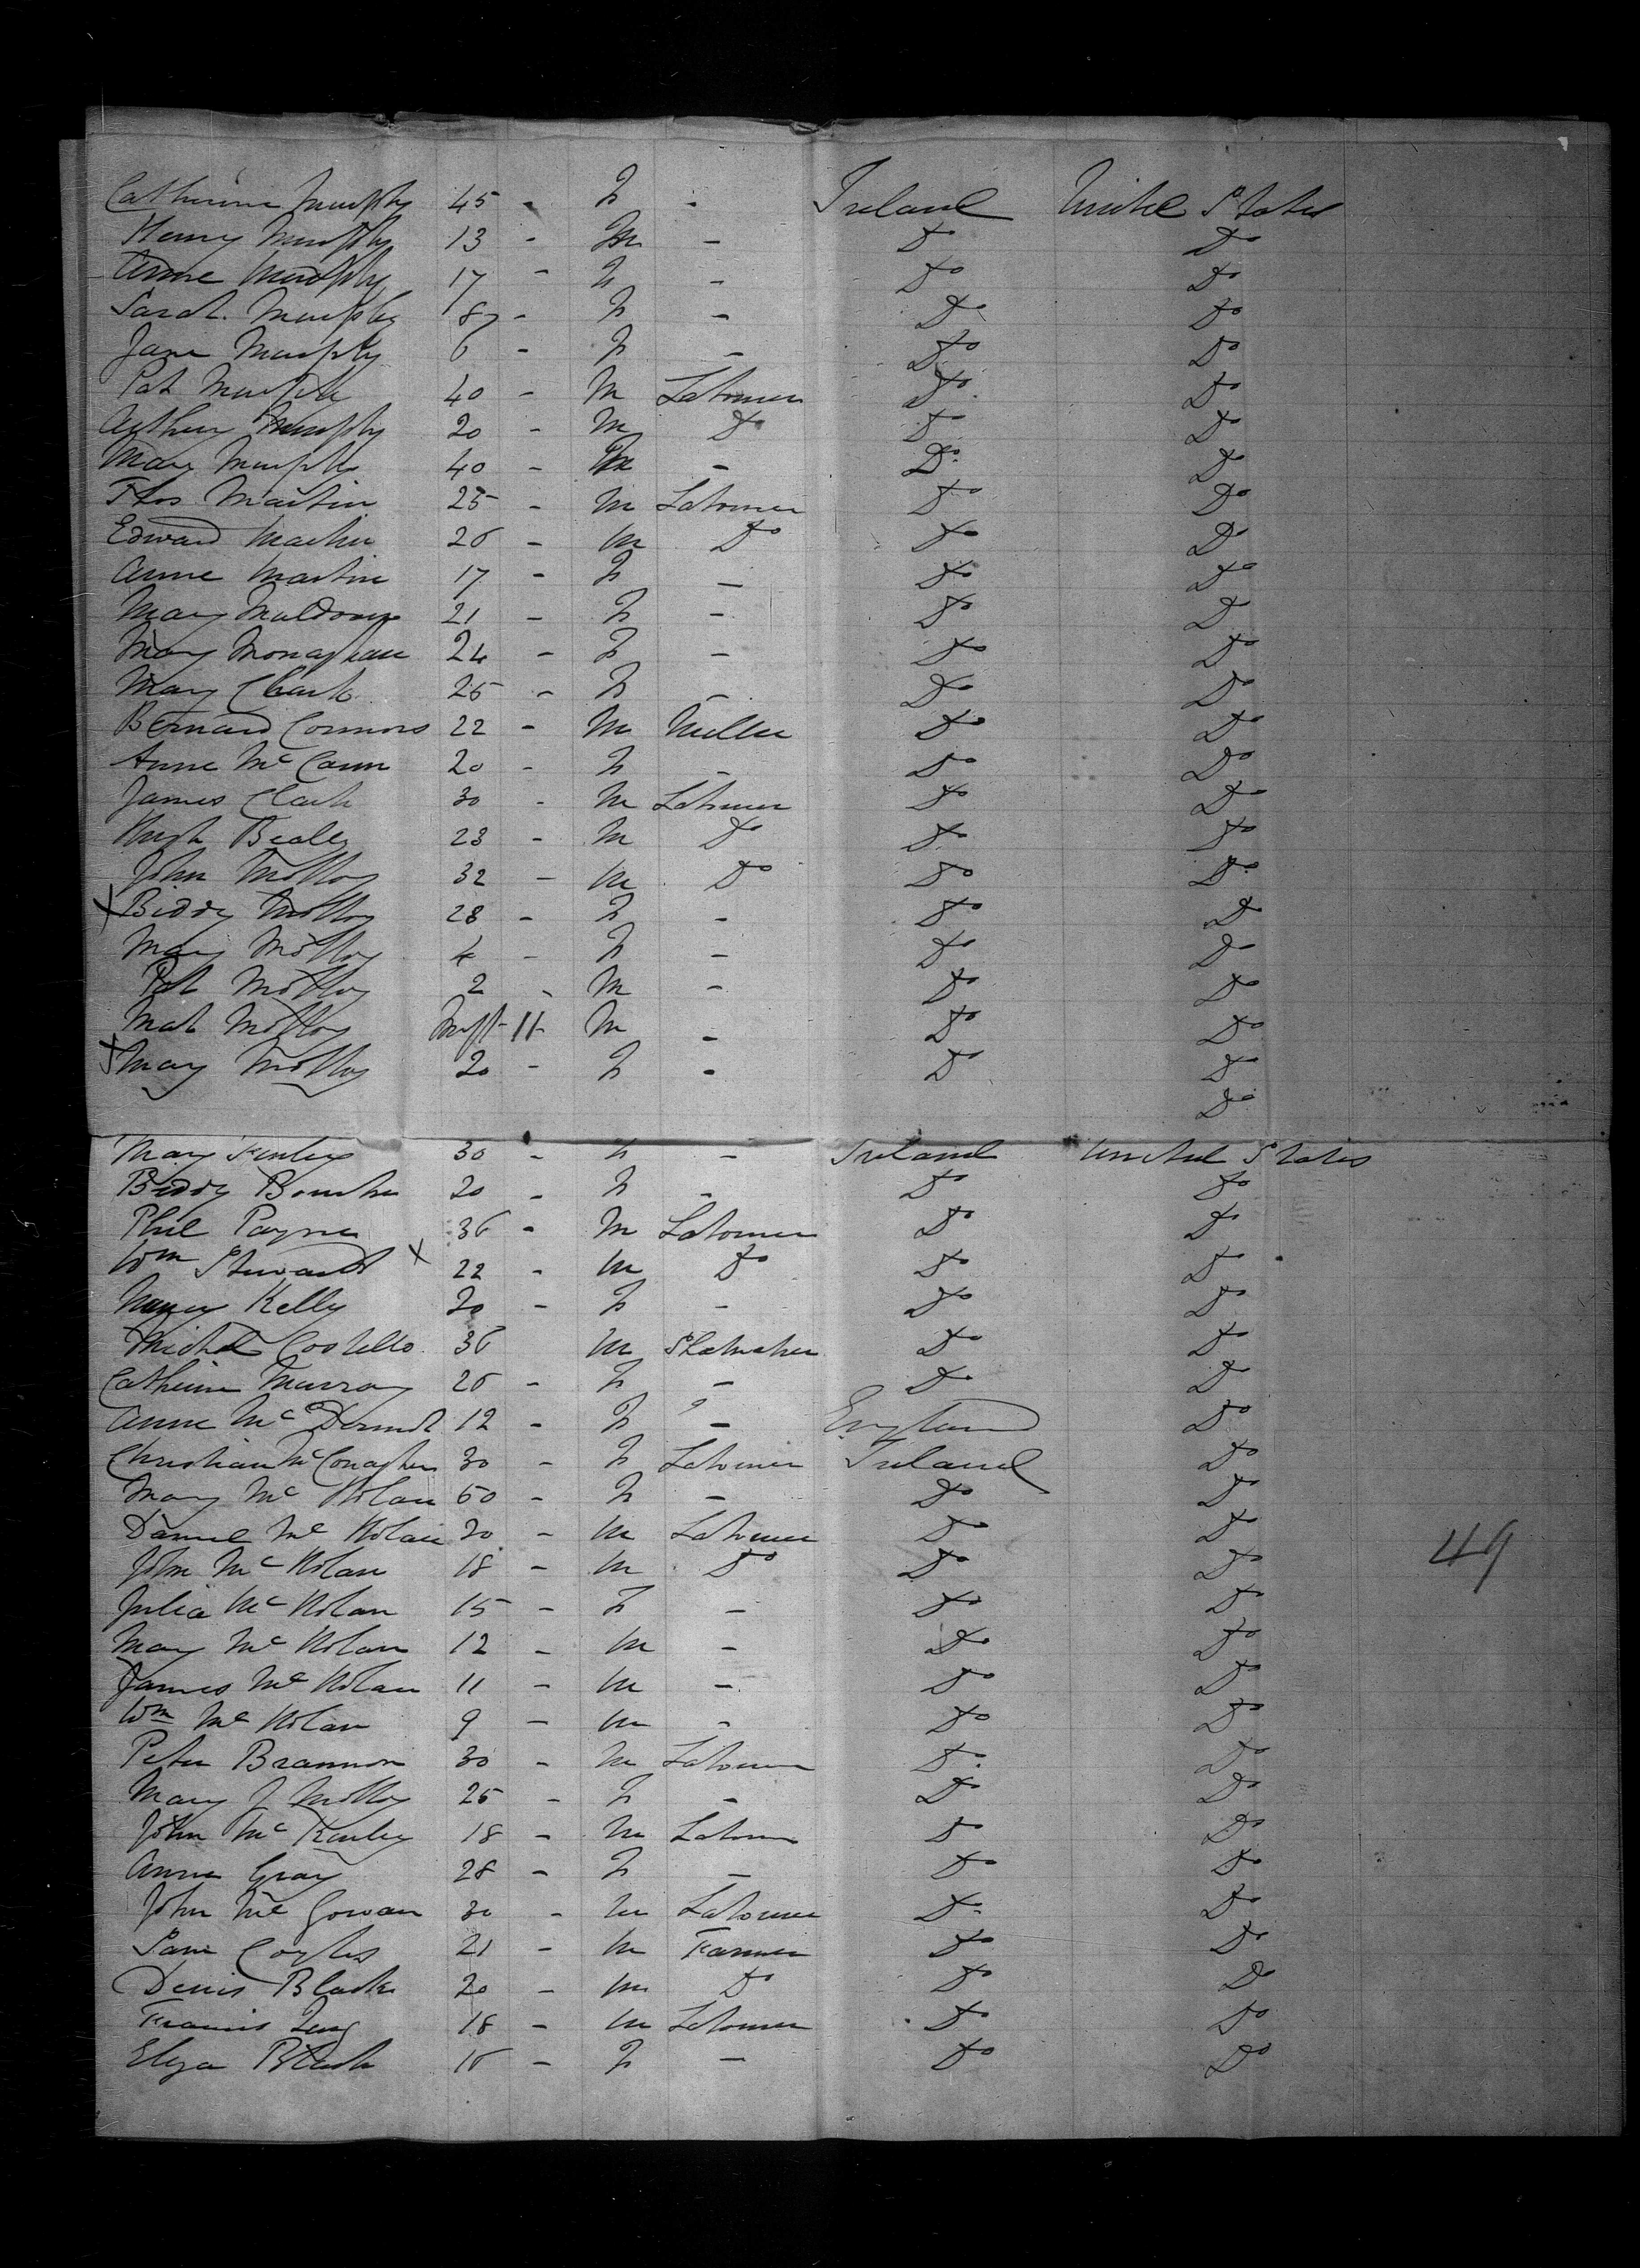 Catherine Murphy 45 - F - Ireland United States
Henry Murphy 13 - M - Do Do
Anne Murphy 17 - F - Do Do
Sarah Murphy 8 - F - Do Do
Jane Murphy 6 - F - Do Do
Pat Murphy 40 - M Labourer Do Do
Arthur Murphy 20 - M Do Do Do
Mary Murphy 40 - - Do Do
Thos Martin 25 - M Labourer Do Do
Edward Martin 26 - M Do Do Do
Anne Martin 17 - F - Do Do
Mary Muldoon 21 - F - Do Do
Mary Monaghan 24 - F - Do Do
Mary Clark 25 - F - Do Do
Bernard Connors 22 - M Miller Do Do
Anne Mc Cann 20 - F - Do Do
James Clark 30 - M Labourer Do Do
Hugh 23 - M Do Do Do
John Molloy 32 - M Do Do Do
X Biddy Molloy 28 - F - Do Do
Mary Molloy 4 - F - Do Do
Pat Molloy 2 - M - Do Do
Mat Molloy 11 - M - Do Do
X Mary Molloy 20 - F - Do Do
Do
Mary 30 - F - Ireland United States
Biddy Bourke 20 - F - Do Do
Phil Payne 36 - M Labourer Do Do
Wm Stewart X 22 - M Do Do Do
Nancy Kelly 20 - F - Do Do
Michl Costello 36 M Do Do
Catherine Murray 26 - F - Do Do
Anne Mc Dermot 12 - F - England Do
Christian McConaghen 30 - F Labourer Ireland Do
Mary Mc Nolan 50 - F - Do Do
Daniel Mc Nolan 20 - M Labourer Do Do
John Mc Nolan 18 - M Do Do Do
49
Julia Mc Nolan 15 - F - Do Do
Mary Mc Nolan 12 - M - Do Do
James Mc Nolan 11 - M - Do Do
Wm Mc Nolan 9 - M - Do Do
Peter Brannon 30 - M Labourer Do Do
Mary J Molloy 25 - F - Do Do
John Mc Kenley 18 - M Labourer Do Do
Anne Gray 28 - F - Do Do
John Mc Gowan 30 - M Labourer Do Do
Sam Coyles 21 - M Farmer Do Do
Denis Black 20 - M Do Do Do
Francis 18 - M Labourer Do Do
Eliza Black 16 - F - Do Do